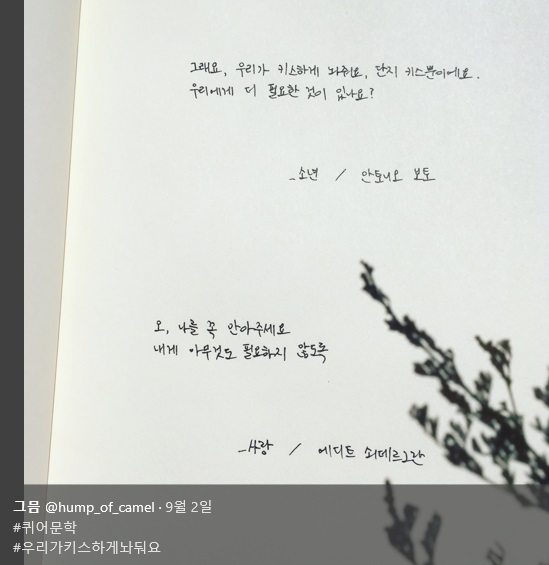 그래요, 우리가 키스하게 놔줘요, 단지 키스뿐이에요.
우리에게 더 필요한 것이 있나요?
_소년 / 안토니오 보토
오, 나를 꼭 안아주세요
내게 아무것도 필요하지 않도록
_사랑 / 에디트 쇠데르그란
그믐 @hump_of_camel · 9월 2일
#퀴어문학
#우리가키스하게놔둬요